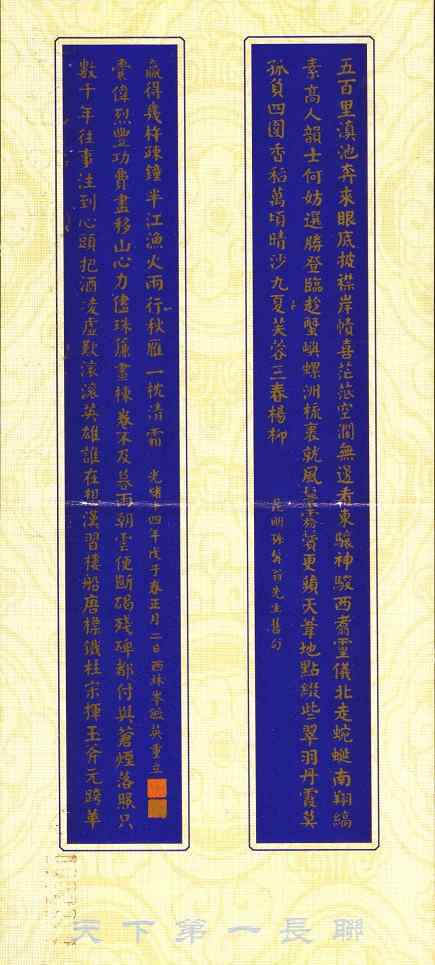 五百里滇池奔來眼底披襟岸幘喜茫茫空闊無邊看東驤神駿西翥靈儀北走蜿蜒南翔縞
素高人韻士何妨選勝登臨趁蟹嶼螺洲梳裹就風鬟霧鬢更蘋天葦地點綴些翠羽丹霞莫
孤負四圍香稻萬頃晴沙九夏芙蓉三春楊柳
昆明孫髯翁先生舊句
數千年往事注到心頭把酒淩虛歎滾滾英雄誰在想漢習樓船唐標鐵柱宋揮玉斧元跨革
囊偉烈豐功費盡移山心力儘珠簾畫棟卷不及暮雨朝雲便斷碣殘碑都付與蒼煙落照只
贏得幾杵疎鐘半江漁火兩行秋雁一枕清霜
光緒十四年戊子春正月二日西林岑毓英重立
天下第一長聯